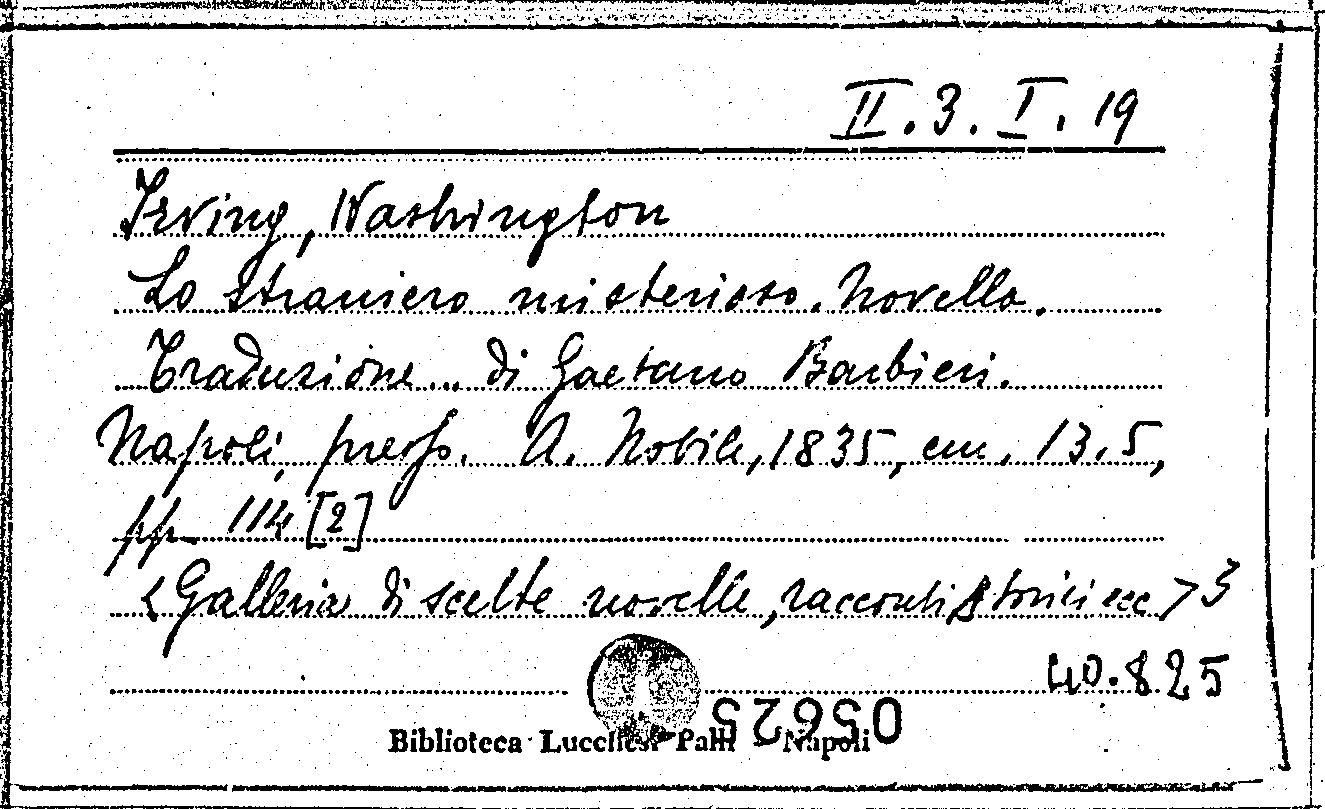 II.3.I.19
Irving, Washington
Lo straniero misterioso. Novella.
Traduzione... di Gaetano Barbieri.
Napoli, presso. A. Nobile, 1835, cm. 13.5,
pp. 114 [2]
<Galleria di scelte novelle, racconti storici ecc > 3
40.825
05625
Biblioteca Lucchesi Palli - Napoli